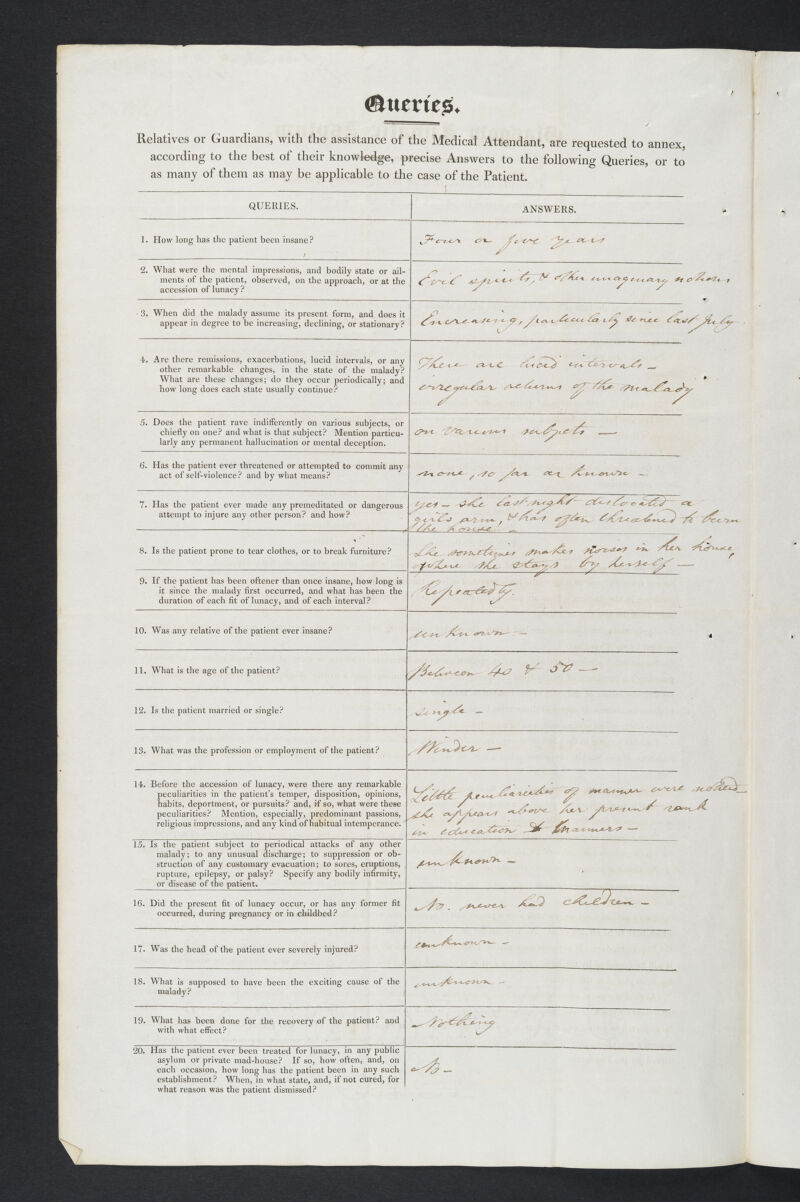 Queries.
Relatives or Guardians, with the assistance of the Medical Attendant, are requested to annex,
according to the best of their knowledge, precise Answers to the following Queries, or to
as many of them as may be applicable to the case of the Patient.
QUERIES.
ANSWERS.
1. How long has the patient been insane?
Four or five years
2. What were the mental impressions, and bodily state or ail-
ments of the patient, observed, on the approach, or at the
accession of lunacy?
Evil spirits, & other imaginary notions
3. When did the malady assume its present form, and does it
appear in degree to be increasing, declining, or stationary?
Encreasing, particularly since last July
4. Are there remissions, exacerbations, lucid intervals, or any
other remarkable changes, in the state of the malady?
What are these changes; do they occur periodically; and
how long does each state usually continue?
There are lucid intervals —
irregular returns of the malady
5. Does the patient rave indifferently on various subjects, or
chiefly on one? and what is that subject? Mention particu-
larly any permanent hallucination or mental deception.
on various subjects —
6. Has the patient ever threatened or attempted to commit any
act of self-violence? and by what means?
none, so far as known —
7. Has the patient ever made any premeditated or dangerous
attempt to injure any other person? and how?
yes — she last night dislocated a
girl's arm, & has often threatened to burn
the house —
8. Is the patient prone to tear clothes, or to break furniture?
She sometimes makes noises in her house,
where she stays by herself —
9. If the patient has been oftener than once insane, how long is
it since the malady first occurred, and what has been the
duration of each fit of lunacy, and of each interval?
Repeatedly.
10. Was any relative of the patient ever insane?
unknown —
11. What is the age of the patient?
Between 40 & 50 —
12. Is the patient married or single?
Single —
13. What was the profession or employment of the patient?
Winder —
14. Before the accession of lunacy, were there any remarkable
peculiarities in the patient's temper, disposition, opinions,
habits, deportment, or pursuits? and, if so, what were these
peculiarities? Mention, especially, predominant passions,
religious impressions, and any kind of habitual intemperance.
Little peculiarities of manner were noticed
she appears above her present rank
in education & manners —
15. Is the patient subject to periodical attacks of any other
malady; to any unusual discharge; to suppression or ob-
struction of any customary evacuation; to sores, eruptions,
rupture, epilepsy, or palsy? Specify any bodily infirmity,
or disease of the patient.
unknown —
16. Did the present fit of lunacy occur, or has any former fit
occurred, during pregnancy or in childbed?
No. never had children —
17. Was the head of the patient ever severely injured?
unknown —
18. What is supposed to have been the exciting cause of the
malady?
unknown —
19. What has been done for the recovery of the patient? and
with what effect?
Nothing
20. Has the patient ever been treated for lunacy, in any public
asylum or private mad-house? If so, how often, and, on
each occasion, how long has the patient been in any such
establishment? When, in what state, and, if not cured, for
what reason was the patient dismissed?
No —